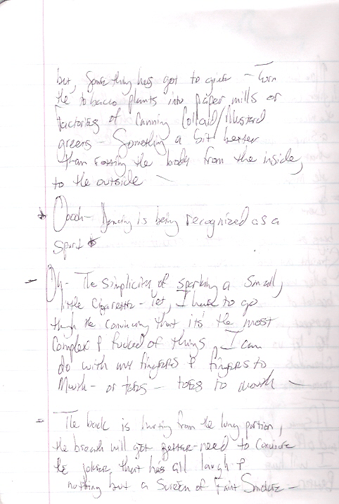 but, something has got to give – Turn
the tobacco plants into paper mills or
factories of canning Collard/Mustard
greens – Something a bit better
than rotting the body from the inside,
to the outside –
Oooh – Dancing is being recognized as a
sport
Oh – The simplicities of sparking a small,
little cigarette – Yet, I have to go
through the convincing that, it's the most
complex & fucked of things I can
do with my fingers & fingers to
Mouth – or toes – toes to mouth –
The book is living from the lung portion,
the breath will get better – need to convince
the joker that has all laugh &
nothing but a screen of faint smoke –